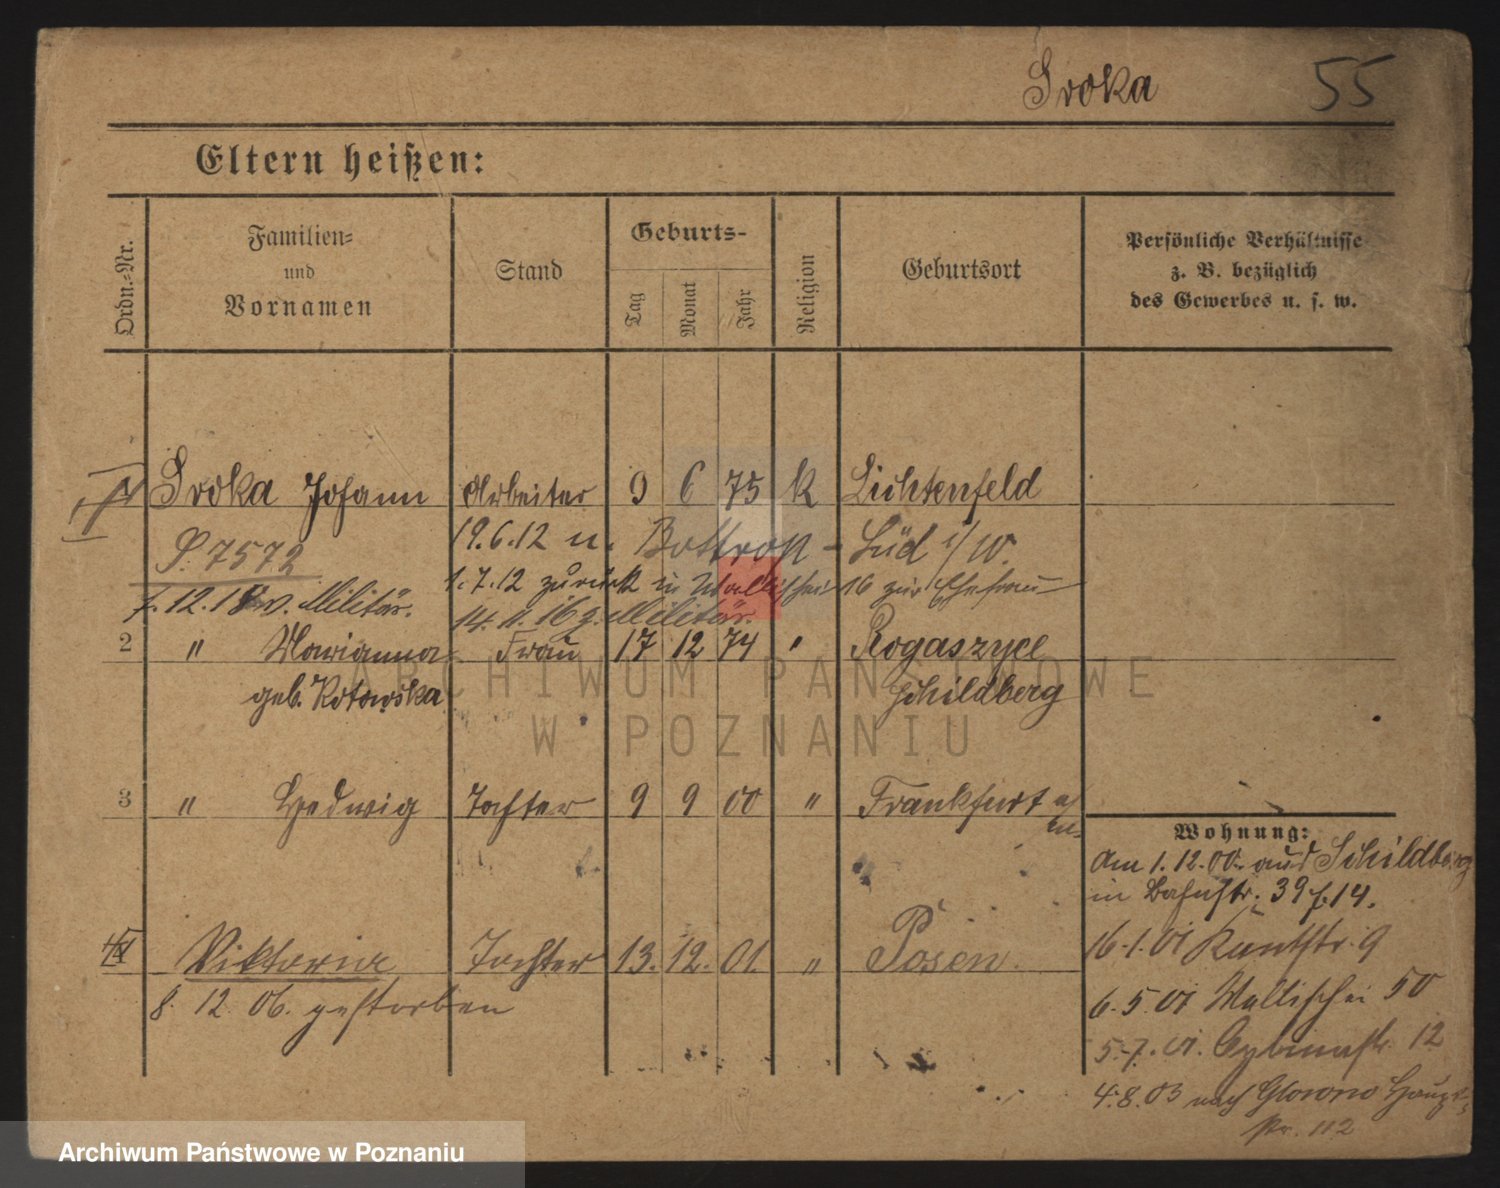 Sroka 55
Eltern heißen:
Ordn.-Nr.
Familien-
und
Vornamen
Stand
Geburts-
Tag
Monat
Jahr
Religion
Geburtsort
Persönliche Verhältnisse
z. B. bezüglich
des Gewerbes u. s. w.
Sroka Johann Arbeiter 9 6 75 k Lichtenfeld
S. 7572 19.6.12 n. Bottrop - Süd i/W.
1.7.12 zurück in Wallischei 16 zur Ehefrau
7.12.18 v. Militär. 14.11.16 z. Militär.
2 " Marianna Frau 17 12 74 " Rogaszyce
geb. Kotowska Schildberg
3 " Hedwig Tochter 9 9 00 " Frankfurt a/
m.
Wohnung:
Am 1.12.00. aus Schildberg
in Bahnstr. 39 f. 14.
4 Viktoria Tochter 13. 12. 01. " Posen.
8. 12. 06. gestorben
16.1.01 9
6.5.01 Wallischei 50
5.7.01. 12
4.8.03 nach Glowno Haupt-
str. 112
ARCHIWUM PAŃSTWOWE
W POZNANIU
Archiwum Państwowe w Poznaniu